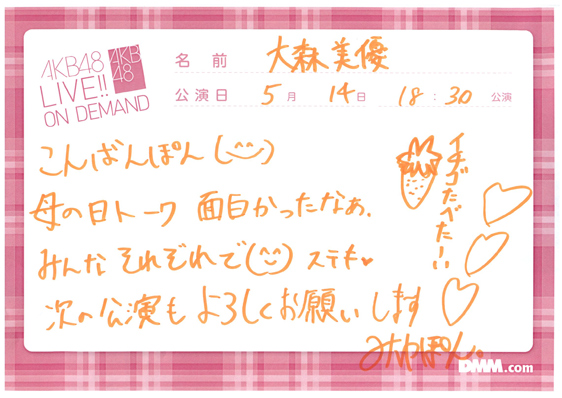 AKB48
LIVE!!
ON DEMAND
AKB
48
名前 大森美優
公演日 5月 14日 18:30 公演
こんばんぽん(^‿^)
母の日トーク 面白かったなぁ、
みんな それぞれで(^‿^) ステキ♥
次の公演も よろしくお願いします
みゆぽん。
イチゴたべたーい
DMM.com